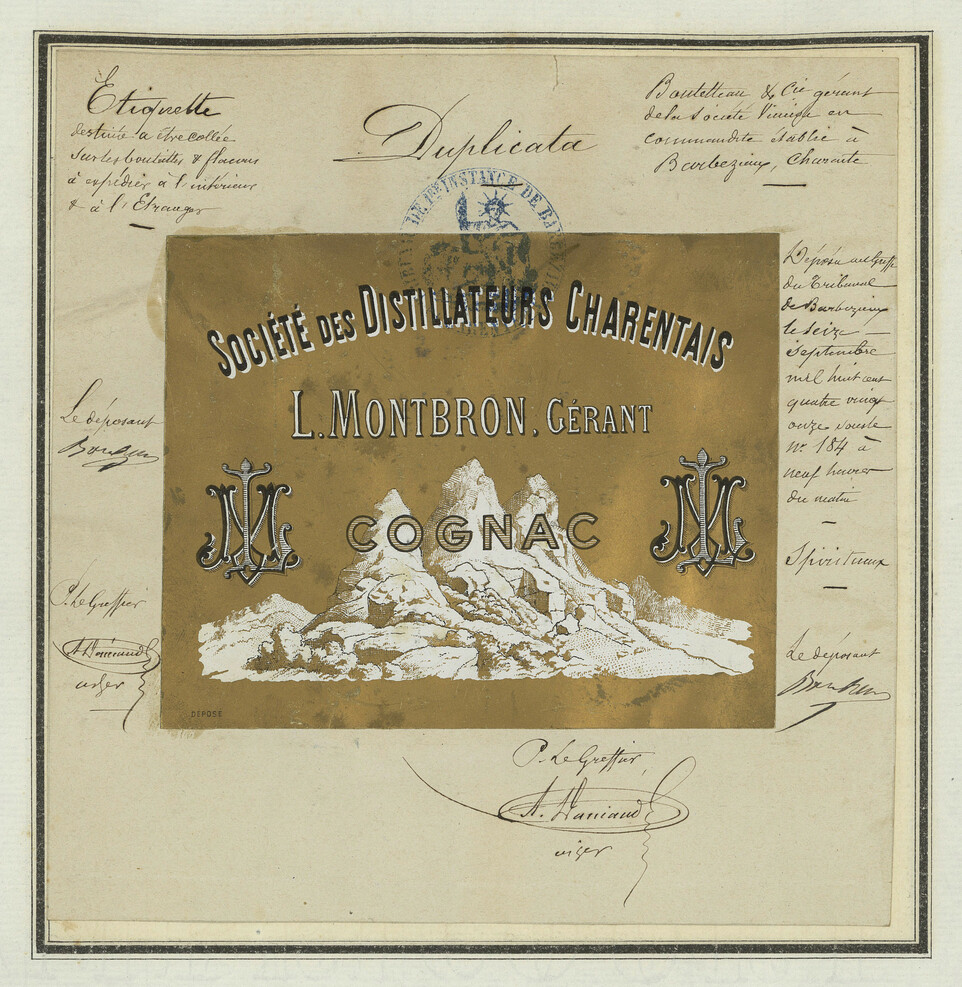 Etiquette
destinée à être collée
sur les bouteilles & flacons
à expédier à l'intérieur
& à l'Etranger
Duplicata
Boutelleau & Cie gérant
de la Société Vinicole en
commandite établie à
Barbezieux, Charente
DE 1RE INSTANCE DE BAR
SOCIÉTÉ DES DISTILLATEURS CHARENTAIS
L. MONTBRON, GÉRANT
COGNAC
DÉPOSÉ
Déposé au Greffe
du Tribunal
de Barbezieux
le seize
septembre
mil huit cent
quatre vingt
onze sous le
No. 184 à
neuf heures
du matin
Spiritueux
Le déposant
Le déposant
P. Le Greffier
P. Le Greffier